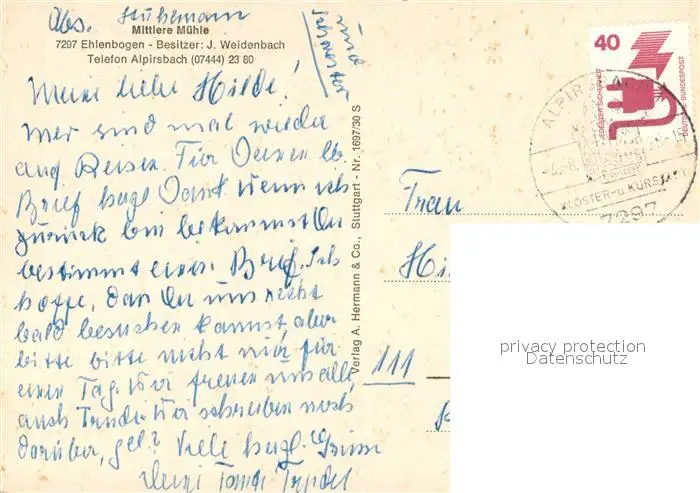 Abs. Stühemann
Mittlere Mühle
7297 Ehlenbogen - Besitzer: J. Weidenbach
Telefon Alpirsbach (07444) 23 80
und
Schwester
Meine liebe Hilde!
Wir sind mal wieder
auf Reisen. Für Deinen lb.
Brief hzgl Dank wenn ich
zurück bin bekommst Du
bestimmt einen Brief. Ich
hoffe, dass Du uns recht
bald besuchen kannst, aber
bitte bitte nicht nur für
einen Tag. Wir freuen uns alle,
auch Trude. Wir schreiben noch
darüber, gel? Viele hzgl. Grüsse
Deine Tante
Verlag A. Herrmann & Co., Stuttgart - Nr. 1697/30 S
40
JEDERZEIT SICHERHEIT
DEUTSCHE BUNDESPOST
ALPIRSBACH
KLOSTER- u. KURSTADT
7297
Frau
Hi
111
privacy protection
Datenschutz